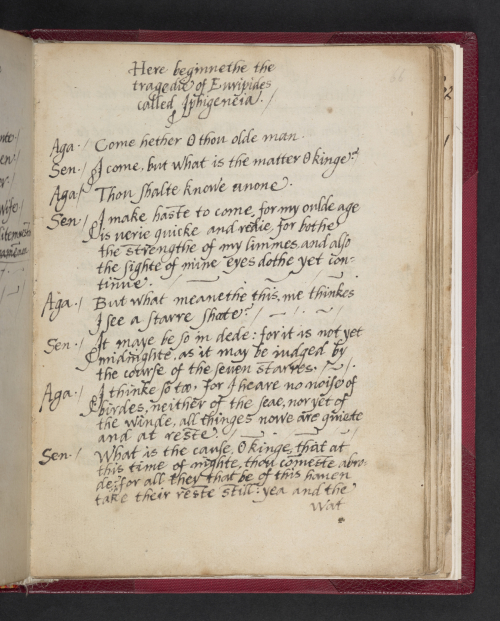 Here beginnethe the
tragedie of Euripides
called Iphigeneia. /
66
Aga. / Come hether O thou olde man.
Sen. / I come, but what is the matter O kinge?
Aga / Thou shalte knowe anone.
Sen. / I make haste to come, for my oulde age
is verie quicke and redie, for bothe
the strengthe of my limmes, and also
the sighte of mine eyes dothe yet con-
tinue. /
Aga. / But what meanethe this, me thinkes
I see a starre shote? /
Sen. / It maye be so in dede: for it is not yet
midnighte, as it may be iudged by
the course of the seven starres. /
Aga. / I thinke so too, for I heare no noise of
birdes, neither of the seae, nor yet of
the winde, all thinges nowe are quiete
and at reste. /
Sen. / What is the cause, O kinge, that at
this time of nighte, thou comeste abro-
de; for all they that be of this haven
take their reste still: yea and the
wat